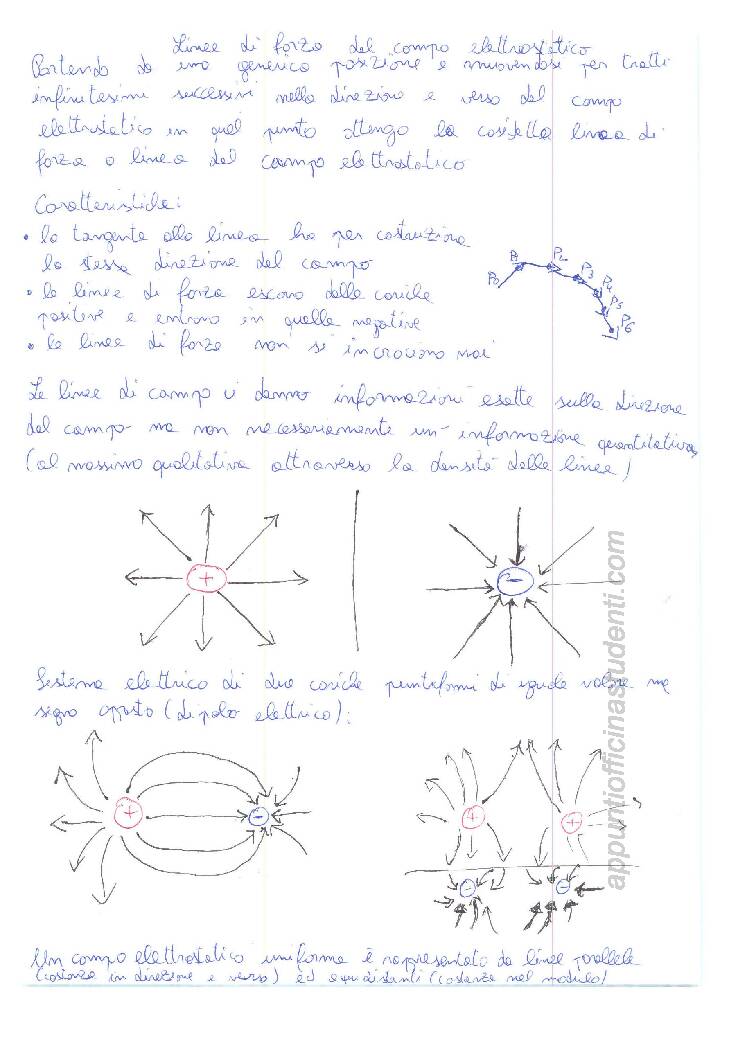 Linee di forza del campo elettrostatico
Partendo da una generica posizione e muovendosi per tratti
infinitesimi successivi nella direzione e verso del campo
elettrostatico in quel punto ottengo la cosidetta linea di
forza o linea del campo elettrostatico
Caratteristiche:
• la tangente alla linea ha per costruzione
la stessa direzione del campo
• le linee di forza escono dalle cariche
positive e entrano in quelle negative
• le linee di forza non si incrociano mai
P0 P1 P2 P3 P4 P5 P6
Le linee di campo ci danno informazioni esatte sulla direzione
del campo ma non necessariamente un'informazione quantitativa
(al massimo qualitativa attraverso la densità delle linee)
+ -
Sistema elettrico di due cariche puntiformi di uguale valore ma
segno opposto (dipolo elettrico):
+ - + +
- -
Un campo elettrostatico uniforme è rappresentato da linee parallele
(costanza in direzione e verso) ed equidistanti (costanza nel modulo)
appuntiofficinastudenti.com